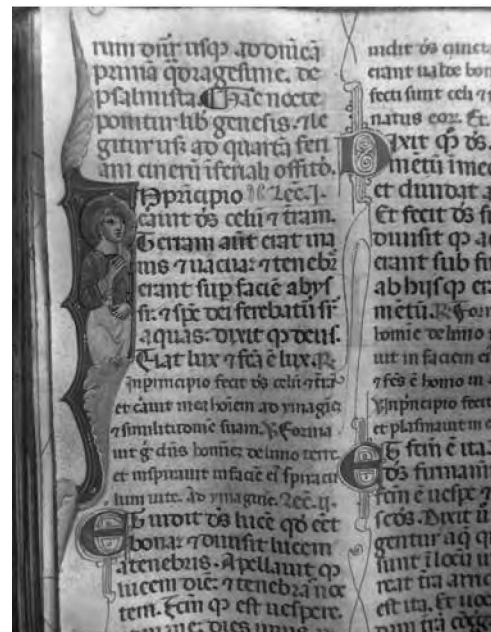 rum dnr usq ad dnica
prima qdragesime. de
psalmista. Hac nocte
ponitur lib genesis. ⁊ le
gitur usq ad quarta feri
am cineru i feriali offito.
In principio Lec. I.
cauit ds celu ⁊ tram.
Terram aut erat ina
nis ⁊ uacua: ⁊ tenebr
erant sup facie abys
si: ⁊ sps dei ferebatur sr
aquas. dixit q deus.
Fiat lux ⁊ fca e lux. R
In principio fecit ds celu ⁊ tra
et cauit in ea hoiem ad ymagie
⁊ similitudine suam. V Forma
uit g dns homine de limo terre.
et inspirauit in facie ei spiracu
lum uite. Ad ymagine. Lec. II.
Et uidit ds luce qd eet
bona: ⁊ diuisit lucem
a tenebris. Apellauit q
lucem die: ⁊ tenebra noc
tem. Fcm q est uespere.
mane: dies unus
uidit ds cuncta
erant ualde bon
fecti sunt celi ⁊
natus eor. Et
Dixit q ds.
metu i med
et diuidat a
Et fecit ds fi
diuisit q a
erant sub fir
ab hiis q er
metu. R Form
homie de limo
uit in faciem ei
⁊ fcs e homo in
V In principio fecit
et plasmauit in e
Et fcm e ita.
ds firmam
fcm e uespe ⁊
scds. Dixit u
gentur aq q
sunt i locu u
reat tra arid
est ita. Et uoc
dnm tra cogg